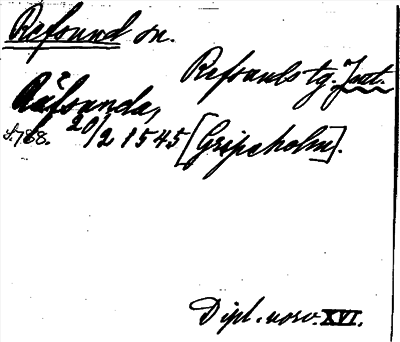 Refsund sn.
Refsunds tg. Jmt.
Räfsunda,
s. 788. 20/2 1545 [Gripsholm].
Dipl. norv. XVI.